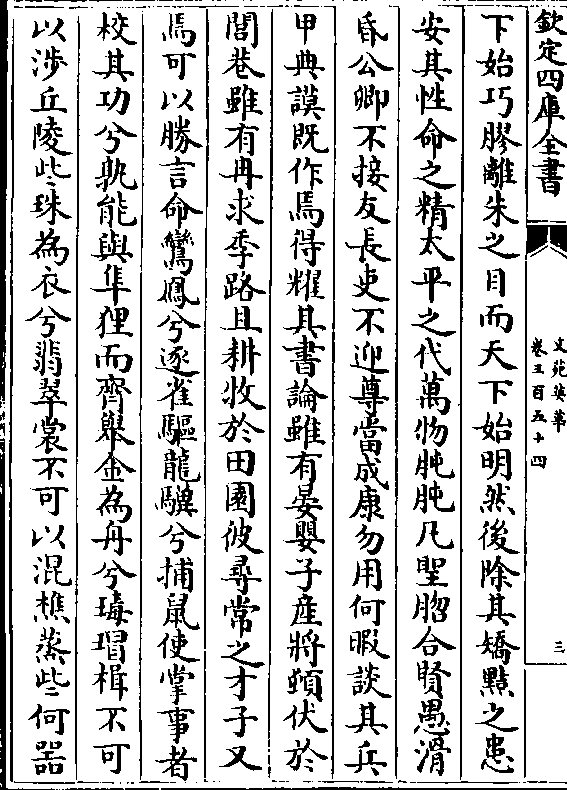 欽定四庫全書
文苑英華
卷三百五十四
三
下始巧膠離朱之目而天下始明然後除其矯黠之患
安其性命之精太平之代萬物肫肫凡聖脗合賢愚滑
昏公卿不接友長吏不迎尊當成康勿用何暇談其兵
甲典謨既作焉得耀其書論雖有晏嬰子產將頞伏於
閭巷雖有冉求季路且耕牧於田園彼尋常之才子又
焉可以勝言命鸞鳳兮逐雀驅龍驥兮捕鼠使掌事者
校其功兮孰能與隼狸而齊舉金為舟兮瑇瑁楫不可
以涉丘陵些珠為衣兮翡翠裳不可以混樵蒸些何器